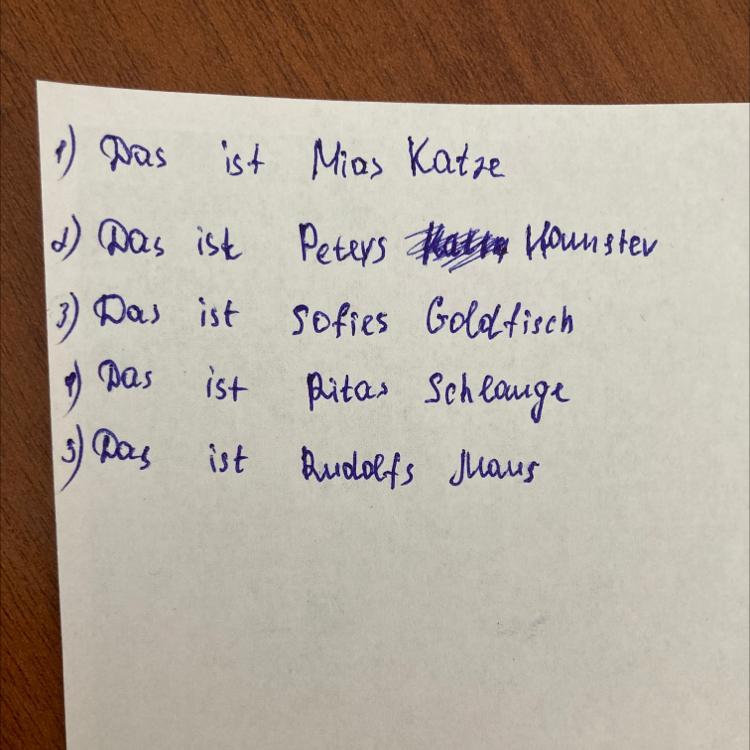 1) Das ist Mias Katze
2) Das ist Peters Hamster
3) Das ist Sofies Goldfisch
4) Das ist Ritas Schlange
5) Das ist Rudolfs Maus